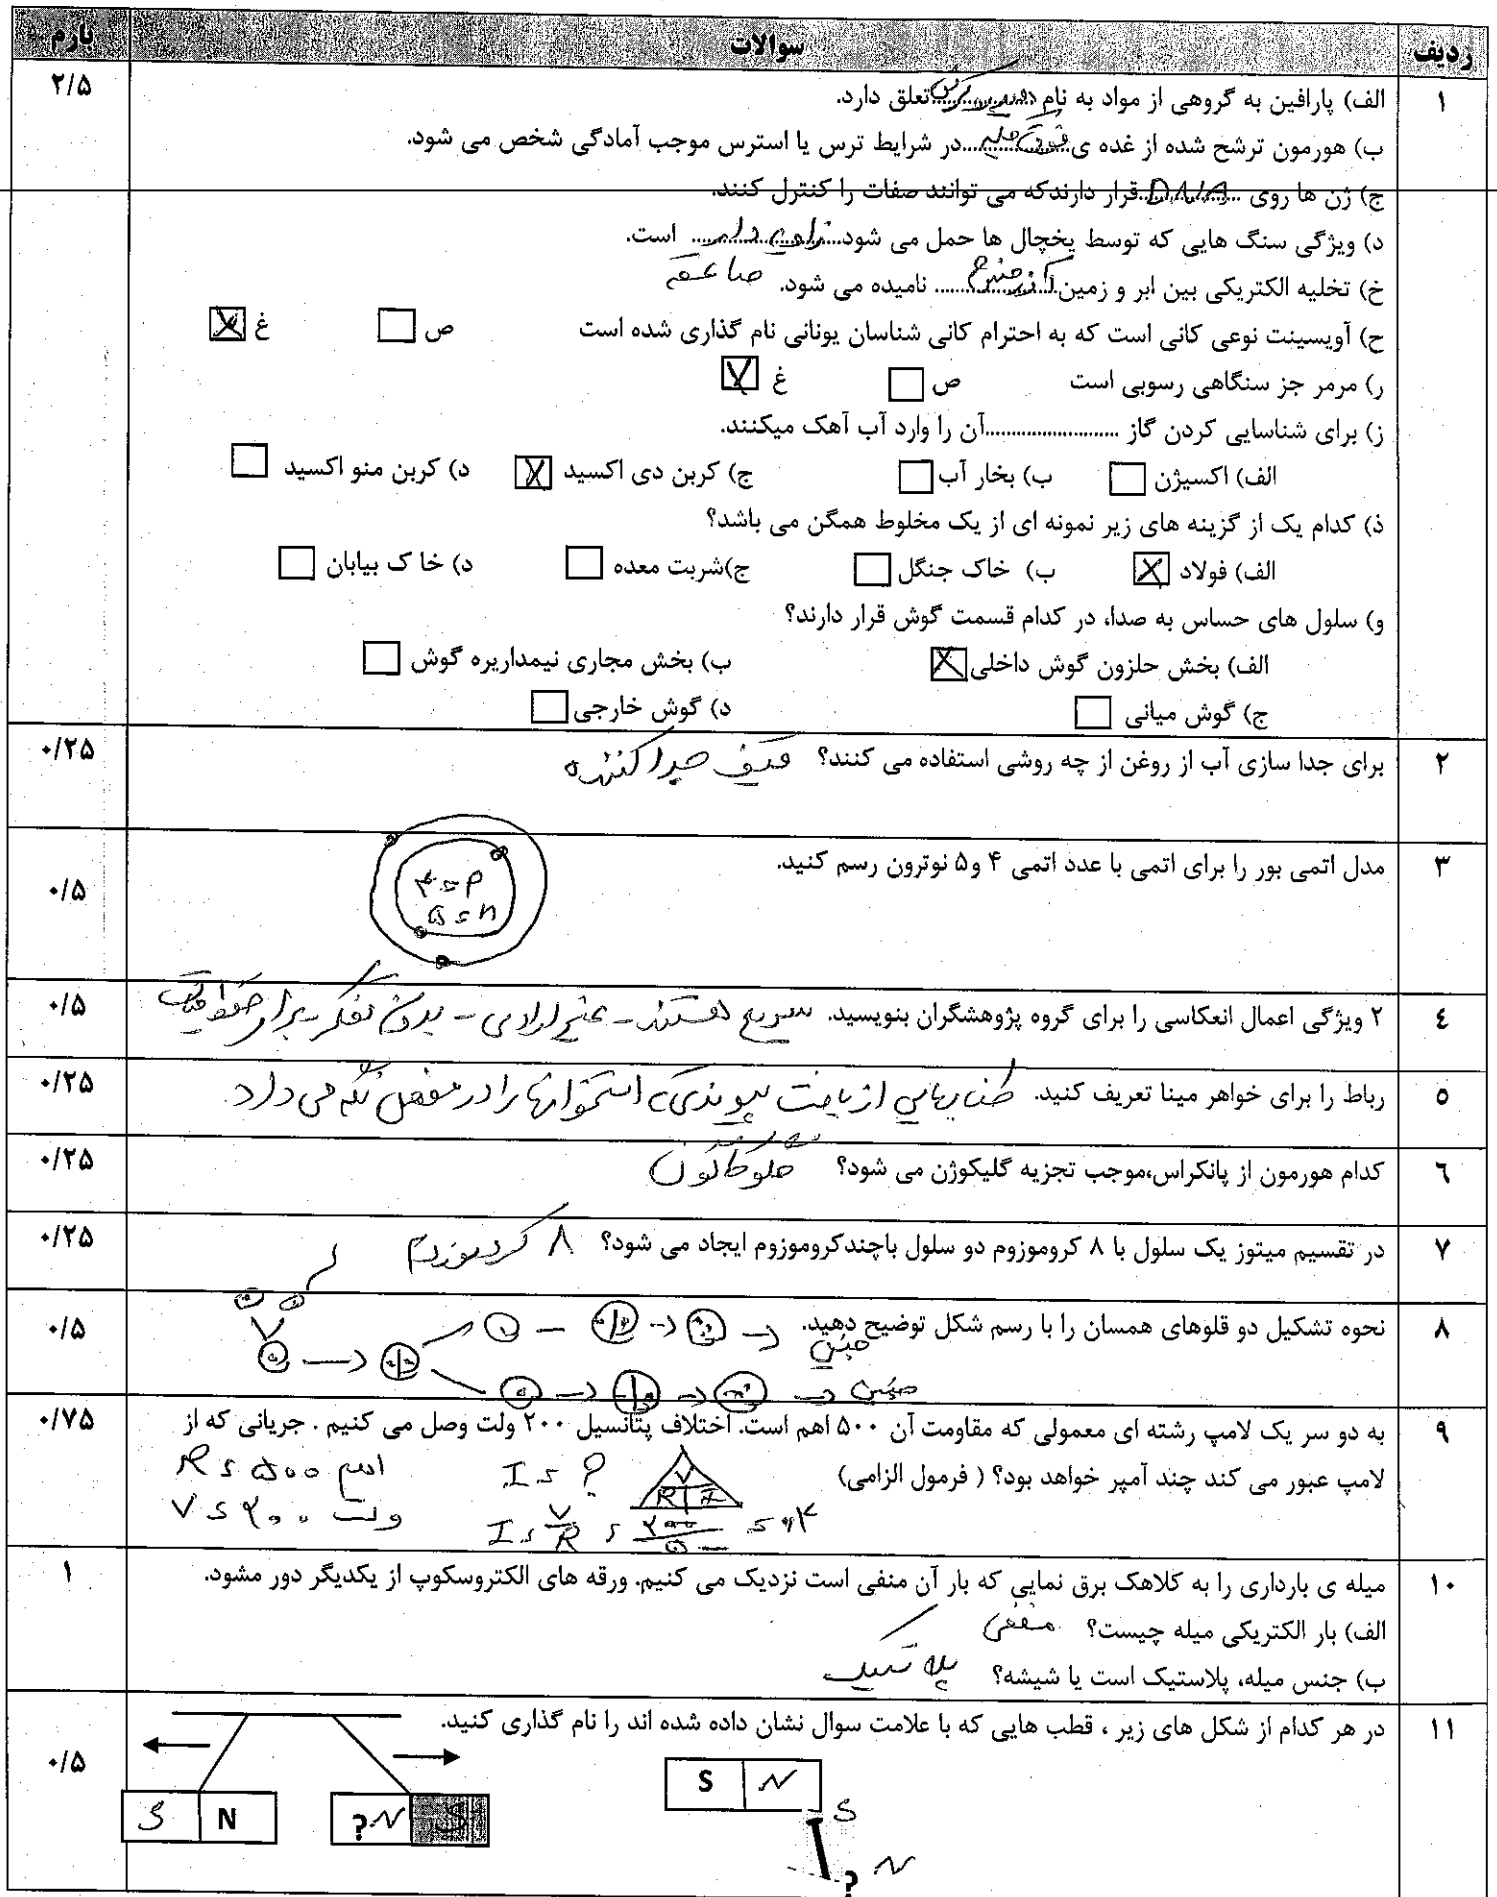 ردیف سوالات بارم
۱ الف) پارافین به گروهی از مواد به نام هیدروکربن تعلق دارد. ۲/۵
ب) هورمون ترشح شده از غده ی فوق کلیه در شرایط ترس یا استرس موجب آمادگی شخص می شود.
ج) ژن ها روی DNA قرار دارندکه می توانند صفات را کنترل کنند.
د) ویژگی سنگ هایی که توسط یخچال ها حمل می شود زاویه دار است.
خ) تخلیه الکتریکی بین ابر و زمین آذرخش نامیده می شود. صاعقه
ح) آویسینت نوعی کانی است که به احترام کانی شناسان یونانی نام گذاری شده است ص غ X
ر) مرمر جز سنگاهی رسوبی است ص غ X
ز) برای شناسایی کردن گاز ........................آن را وارد آب آهک میکنند.
الف) اکسیژن ب) بخار آب ج) کربن دی اکسید X د) کربن منو اکسید
ذ) کدام یک از گزینه های زیر نمونه ای از یک مخلوط همگن می باشد؟
الف) فولاد X ب) خاک جنگل ج)شربت معده د) خا ک بیابان
و) سلول های حساس به صدا، در کدام قسمت گوش قرار دارند؟
الف) بخش حلزون گوش داخلی X ب) بخش مجاری نیمداریره گوش
ج) گوش میانی د) گوش خارجی
۲ برای جدا سازی آب از روغن از چه روشی استفاده می کنند؟ قیف جدا کننده ۰/۲۵
۳ مدل اتمی بور را برای اتمی با عدد اتمی ۴ و۵ نوترون رسم کنید. ۰/۵
۴=p
۵=n
٤ ۲ ویژگی اعمال انعکاسی را برای گروه پژوهشگران بنویسید. سریع هستند - غیر ارادی - بدون تفکر - برای حفظ حیات ۰/۵
٥ رباط را برای خواهر مینا تعریف کنید. طنابهایی از بافت پیوندی که استخوانها را در مفصل نگه می دارد ۰/۲۵
٦ کدام هورمون از پانکراس،موجب تجزیه گلیکوژن می شود؟ گلوکاگون ۰/۲۵
۷ در تقسیم میتوز یک سلول با ۸ کروموزوم دو سلول باچندکروموزوم ایجاد می شود؟ ۸ کروموزوم ۰/۲۵
۸ نحوه تشکیل دو قلوهای همسان را با رسم شکل توضیح دهید. ۰/۵
جنین
جنین
۹ به دو سر یک لامپ رشته ای معمولی که مقاومت آن ۵۰۰ اهم است. اختلاف پتانسیل ۲۰۰ ولت وصل می کنیم . جریانی که از ۰/۷۵
لامپ عبور می کند چند آمپر خواهد بود؟ ( فرمول الزامی) V R I I = ? R = ۵۰۰ اهم
I = V/R = ۲۰۰/۵۰۰ = ۰/۴ V = ۲۰۰ ولت
۱۰ میله ی بارداری را به کلاهک برق نمایی که بار آن منفی است نزدیک می کنیم. ورقه های الکتروسکوپ از یکدیگر دور مشود. ۱
الف) بار الکتریکی میله چیست؟ منفی
ب) جنس میله، پلاستیک است یا شیشه؟ پلاستیک
۱۱ در هر کدام از شکل های زیر ، قطب هایی که با علامت سوال نشان داده شده اند را نام گذاری کنید. ۰/۵
S N S
S N ?N S
? N